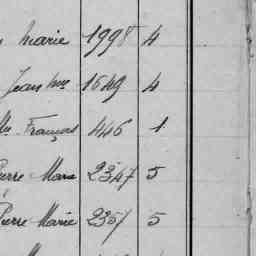 Marie 1998 4
Jean 1649 4
François 446 1
Pierre Marie 2347 5
Pierre Marie 2357 5